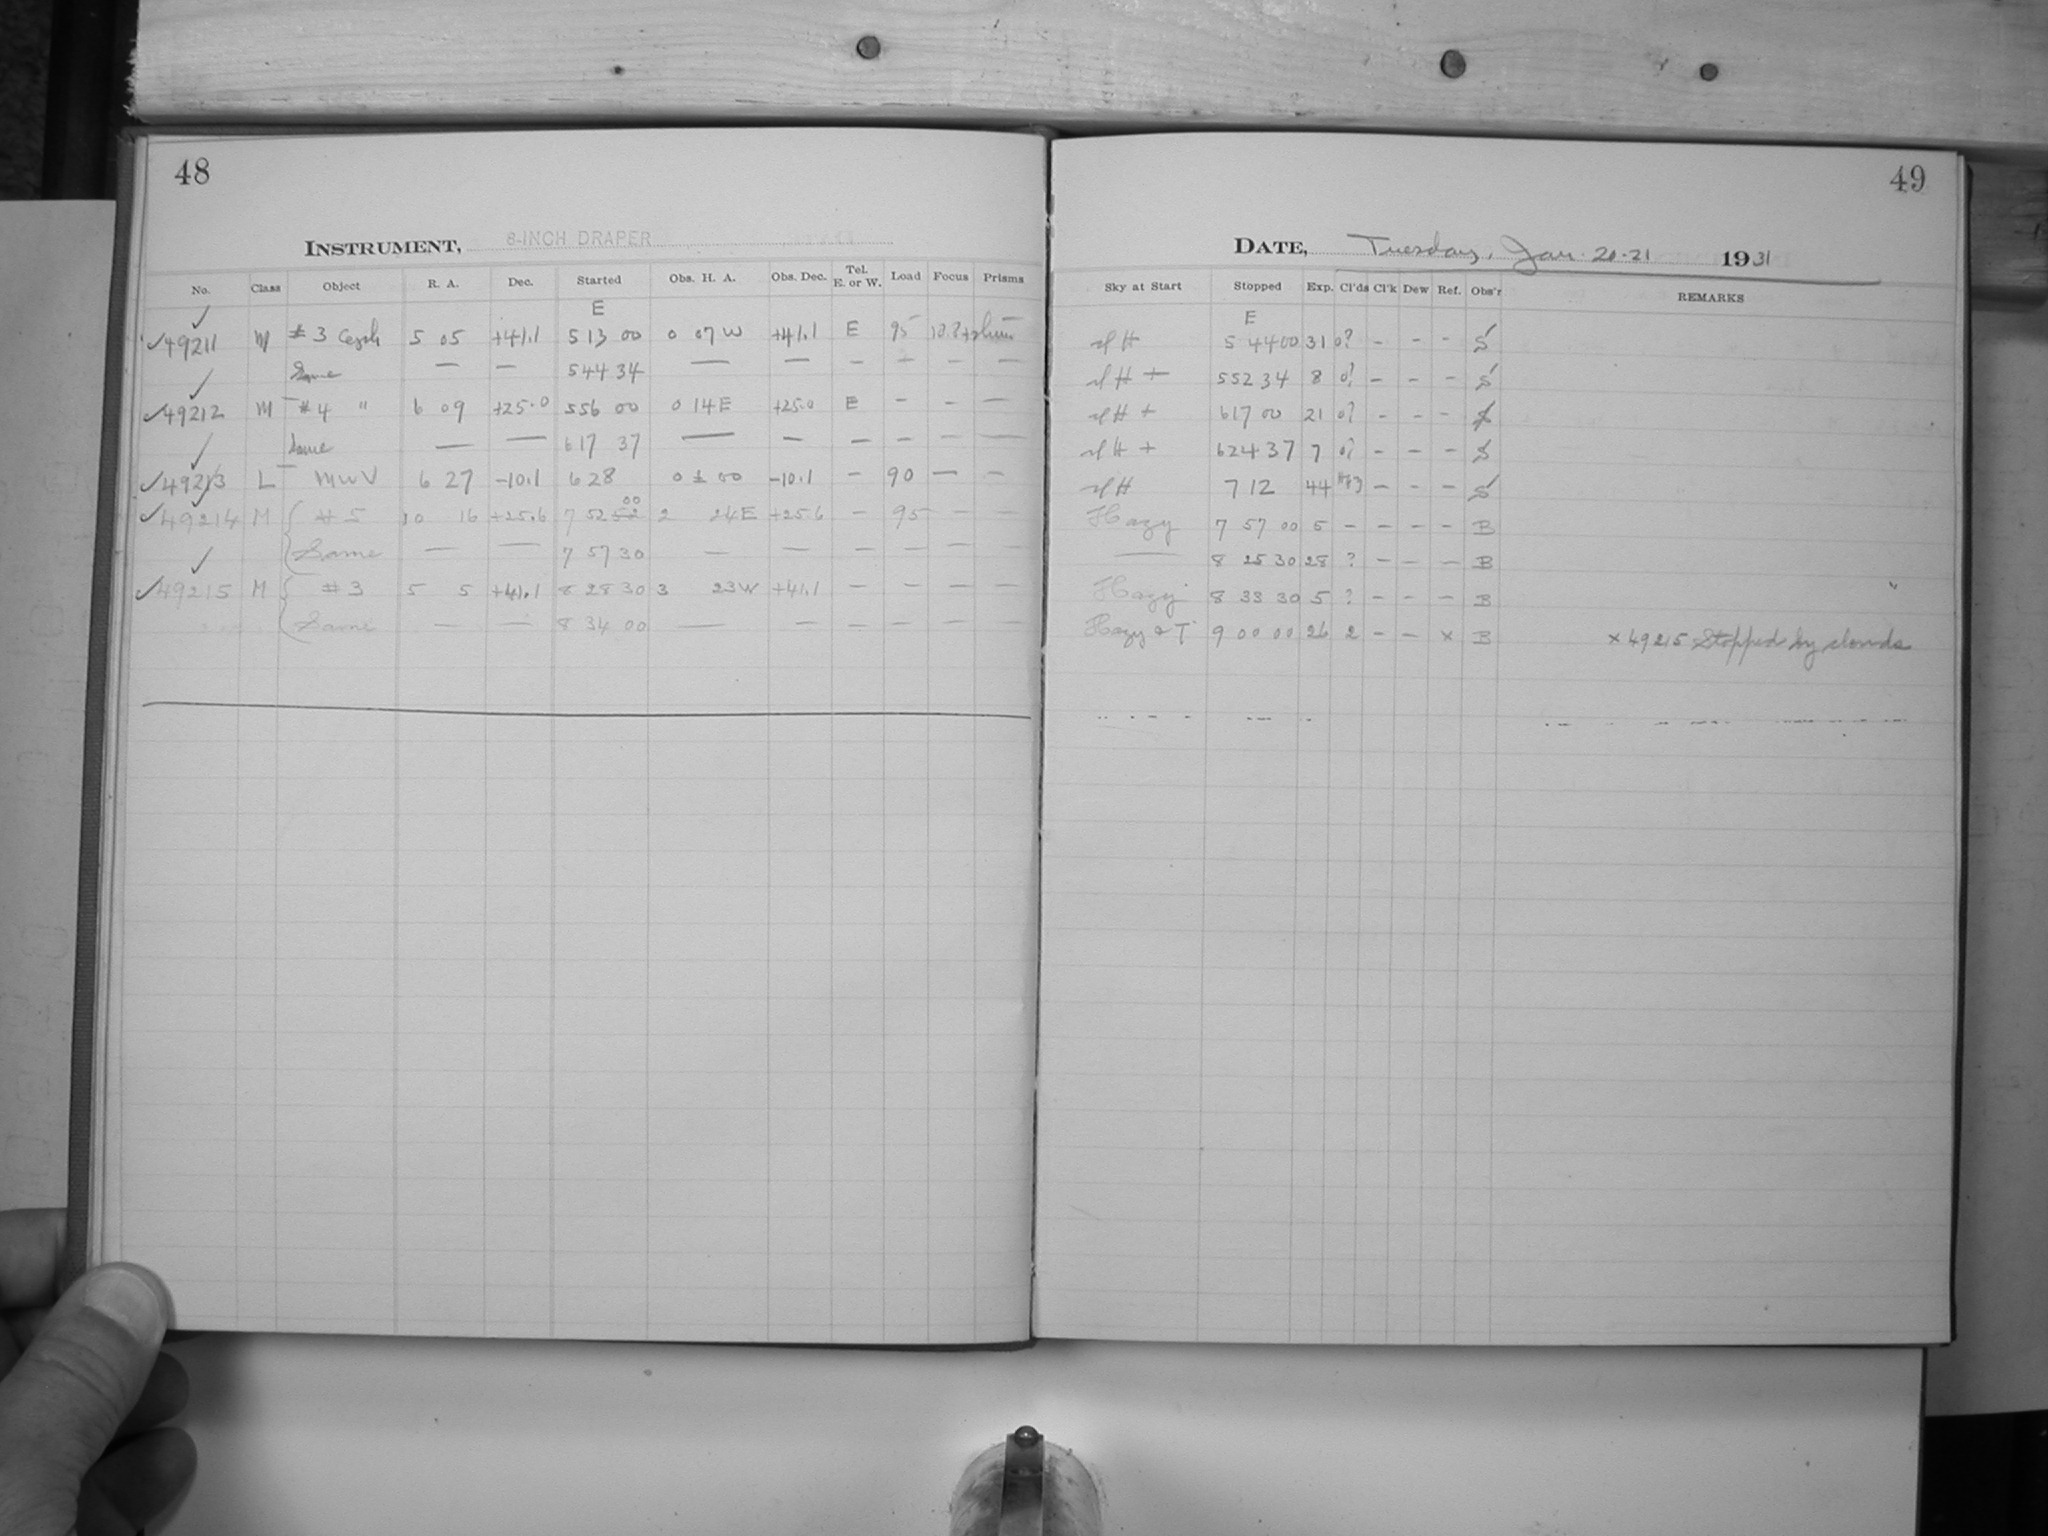 48
INSTRUMENT, 8-INCH DRAPER
No. Class Object R. A. Dec. Started Obs. H. A. Obs. Dec. Tel. E. or W. Load Focus Prisms
E
✓49211 M #3 5 05 +41.1 5 13 00 0 07 W +41.1 E 95
Same — — 5 44 34 — — — — — —
✓49212 M #4 " 6 09 +25.0 5 56 00 0 14 E +25.0 E — — —
Same — — 6 17 37 — — — — — —
✓49213 L MWV 6 27 -10.1 6 28 0 ± 00 -10.1 — 90 — —
✓49214 M #5 10 16 +25.6 7 52 00 2 24 E +25.6 — 95 — —
Same — — 7 57 30 — — — — — —
✓49215 M #3 5 5 +41.1 8 28 30 3 23 W +41.1 — — — —
Same — — 8 34 00 — — — — — —
49
DATE, Tuesday, Jan. 20-21 1931
Sky at Start Stopped Exp. Cl'ds Cl'k Dew Ref. Obs'r REMARKS
E
H 5 44 00 31 0? — — — S
H + 5 52 34 8 0? — — — S
H + 6 17 00 21 0? — — — S
H + 6 24 37 7 0? — — — S
H 7 12 44 — — — S
Hazy 7 57 00 5 — — — — B
— 8 25 30 28 ? — — — B
Hazy 8 33 30 5 ? — — — B
Hazy & T 9 00 00 26 2 — — x B x 49215 Stopped by clouds